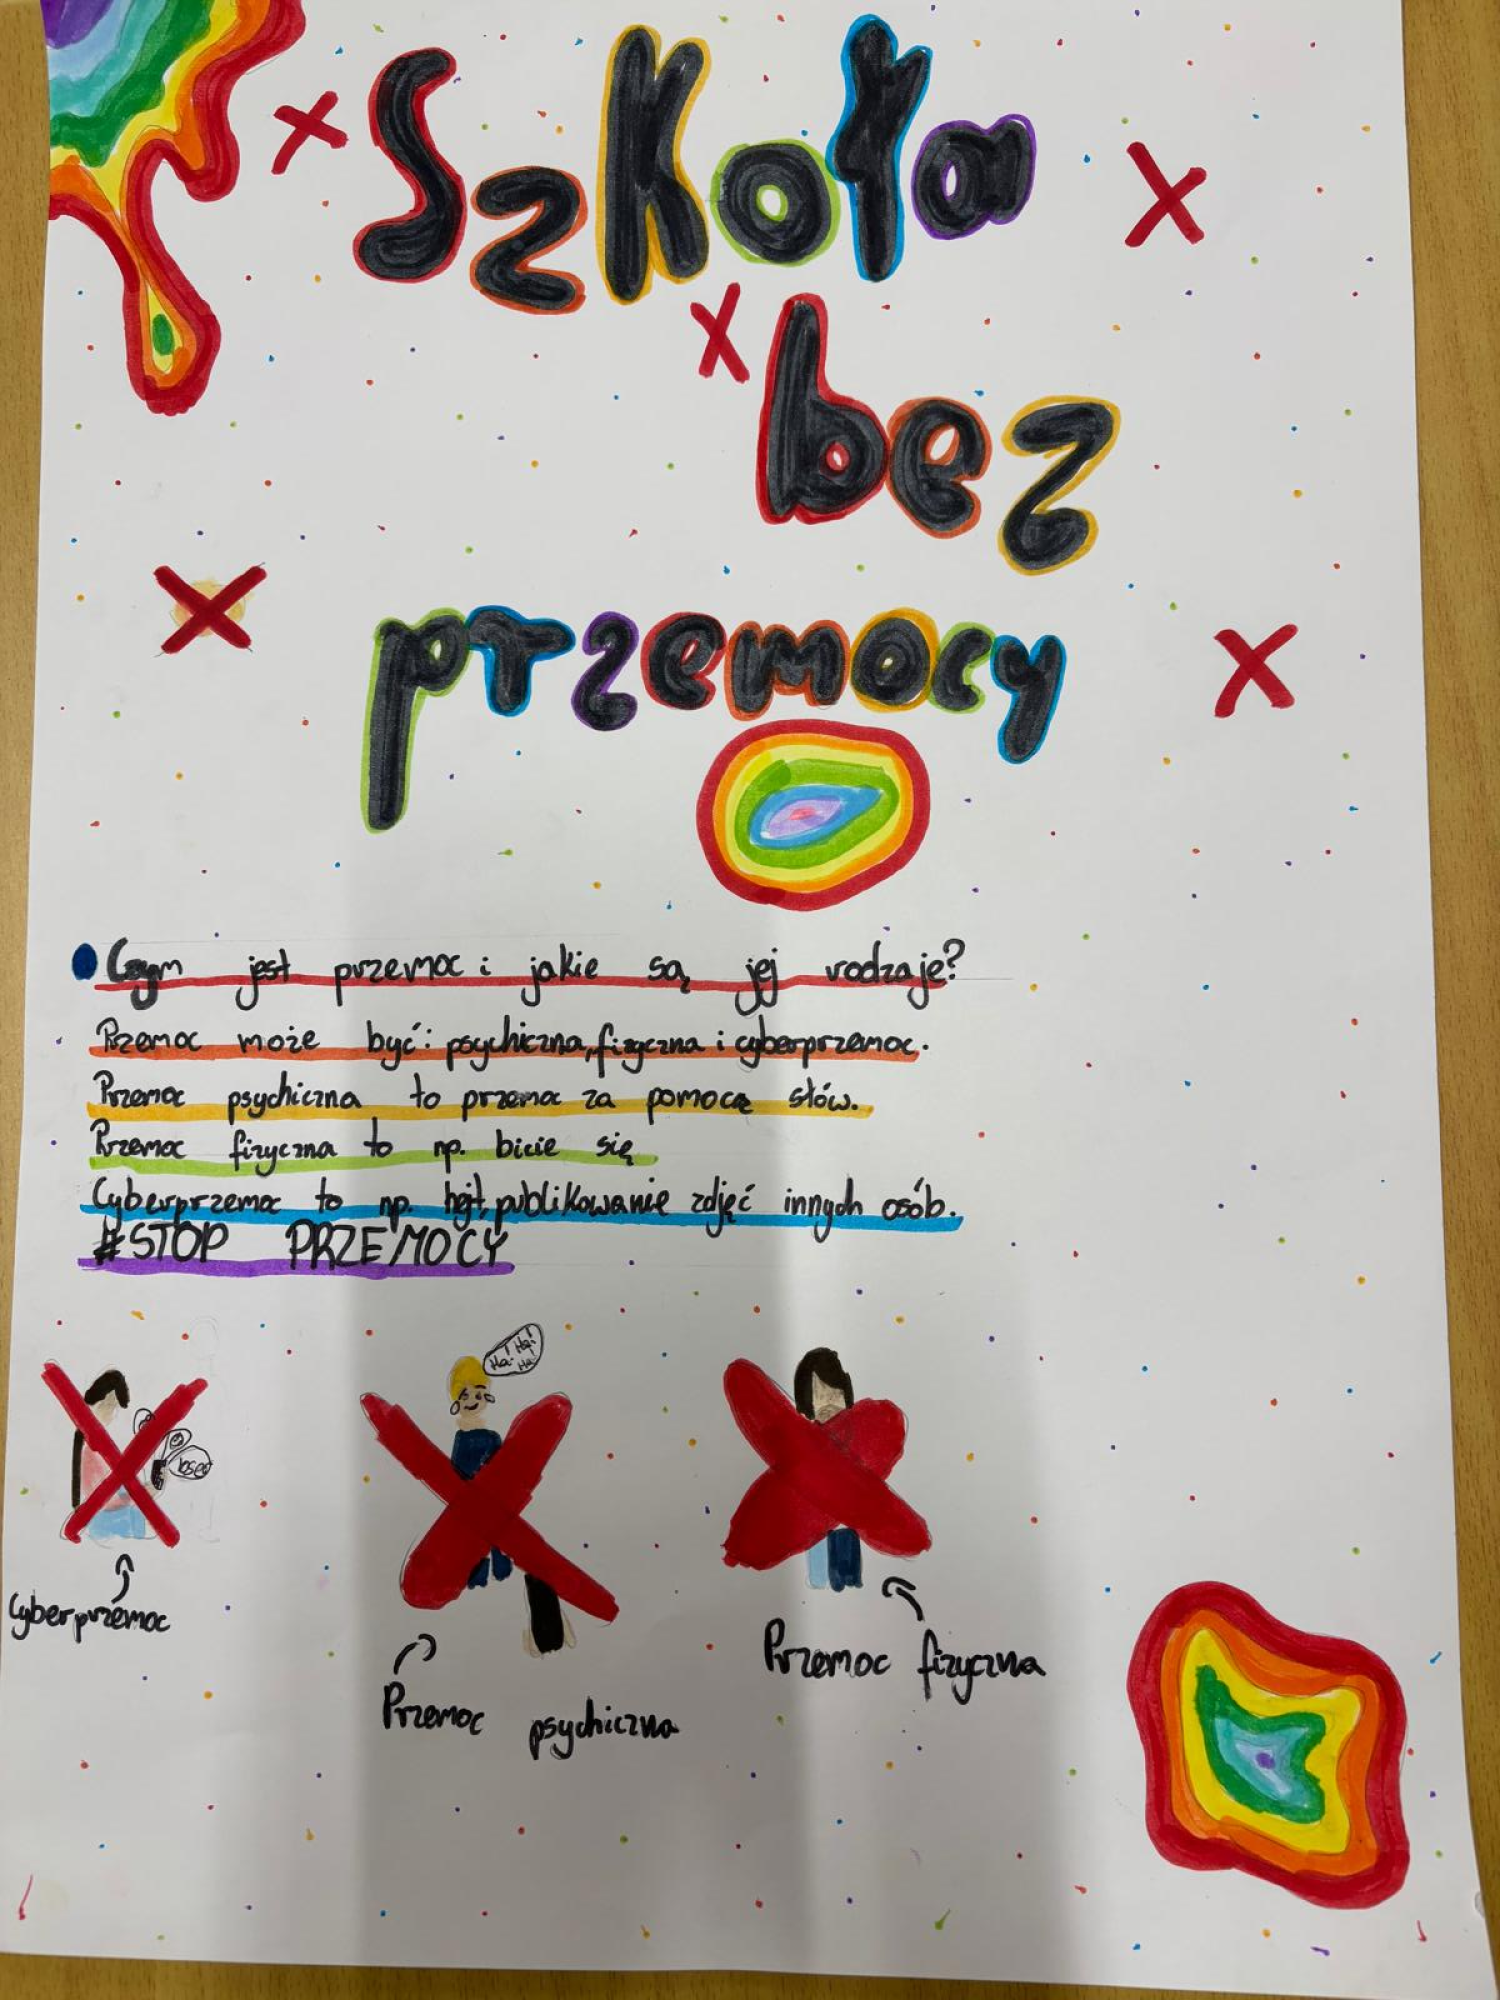 Szkoła
bez
przemocy
Czym jest przemoc i jakie są jej rodzaje?
Przemoc może być: psychiczna, fizyczna i cyberprzemoc.
Przemoc psychiczna to przemoc za pomocą słów.
Przemoc fizyczna to np. bicie się
Cyberprzemoc to np. hejt, publikowanie zdjęć innych osób.
#STOP PRZEMOCY
Ha! Ha!
Ha! Ha!
loser
Cyberprzemoc
Przemoc psychiczna
Przemoc fizyczna